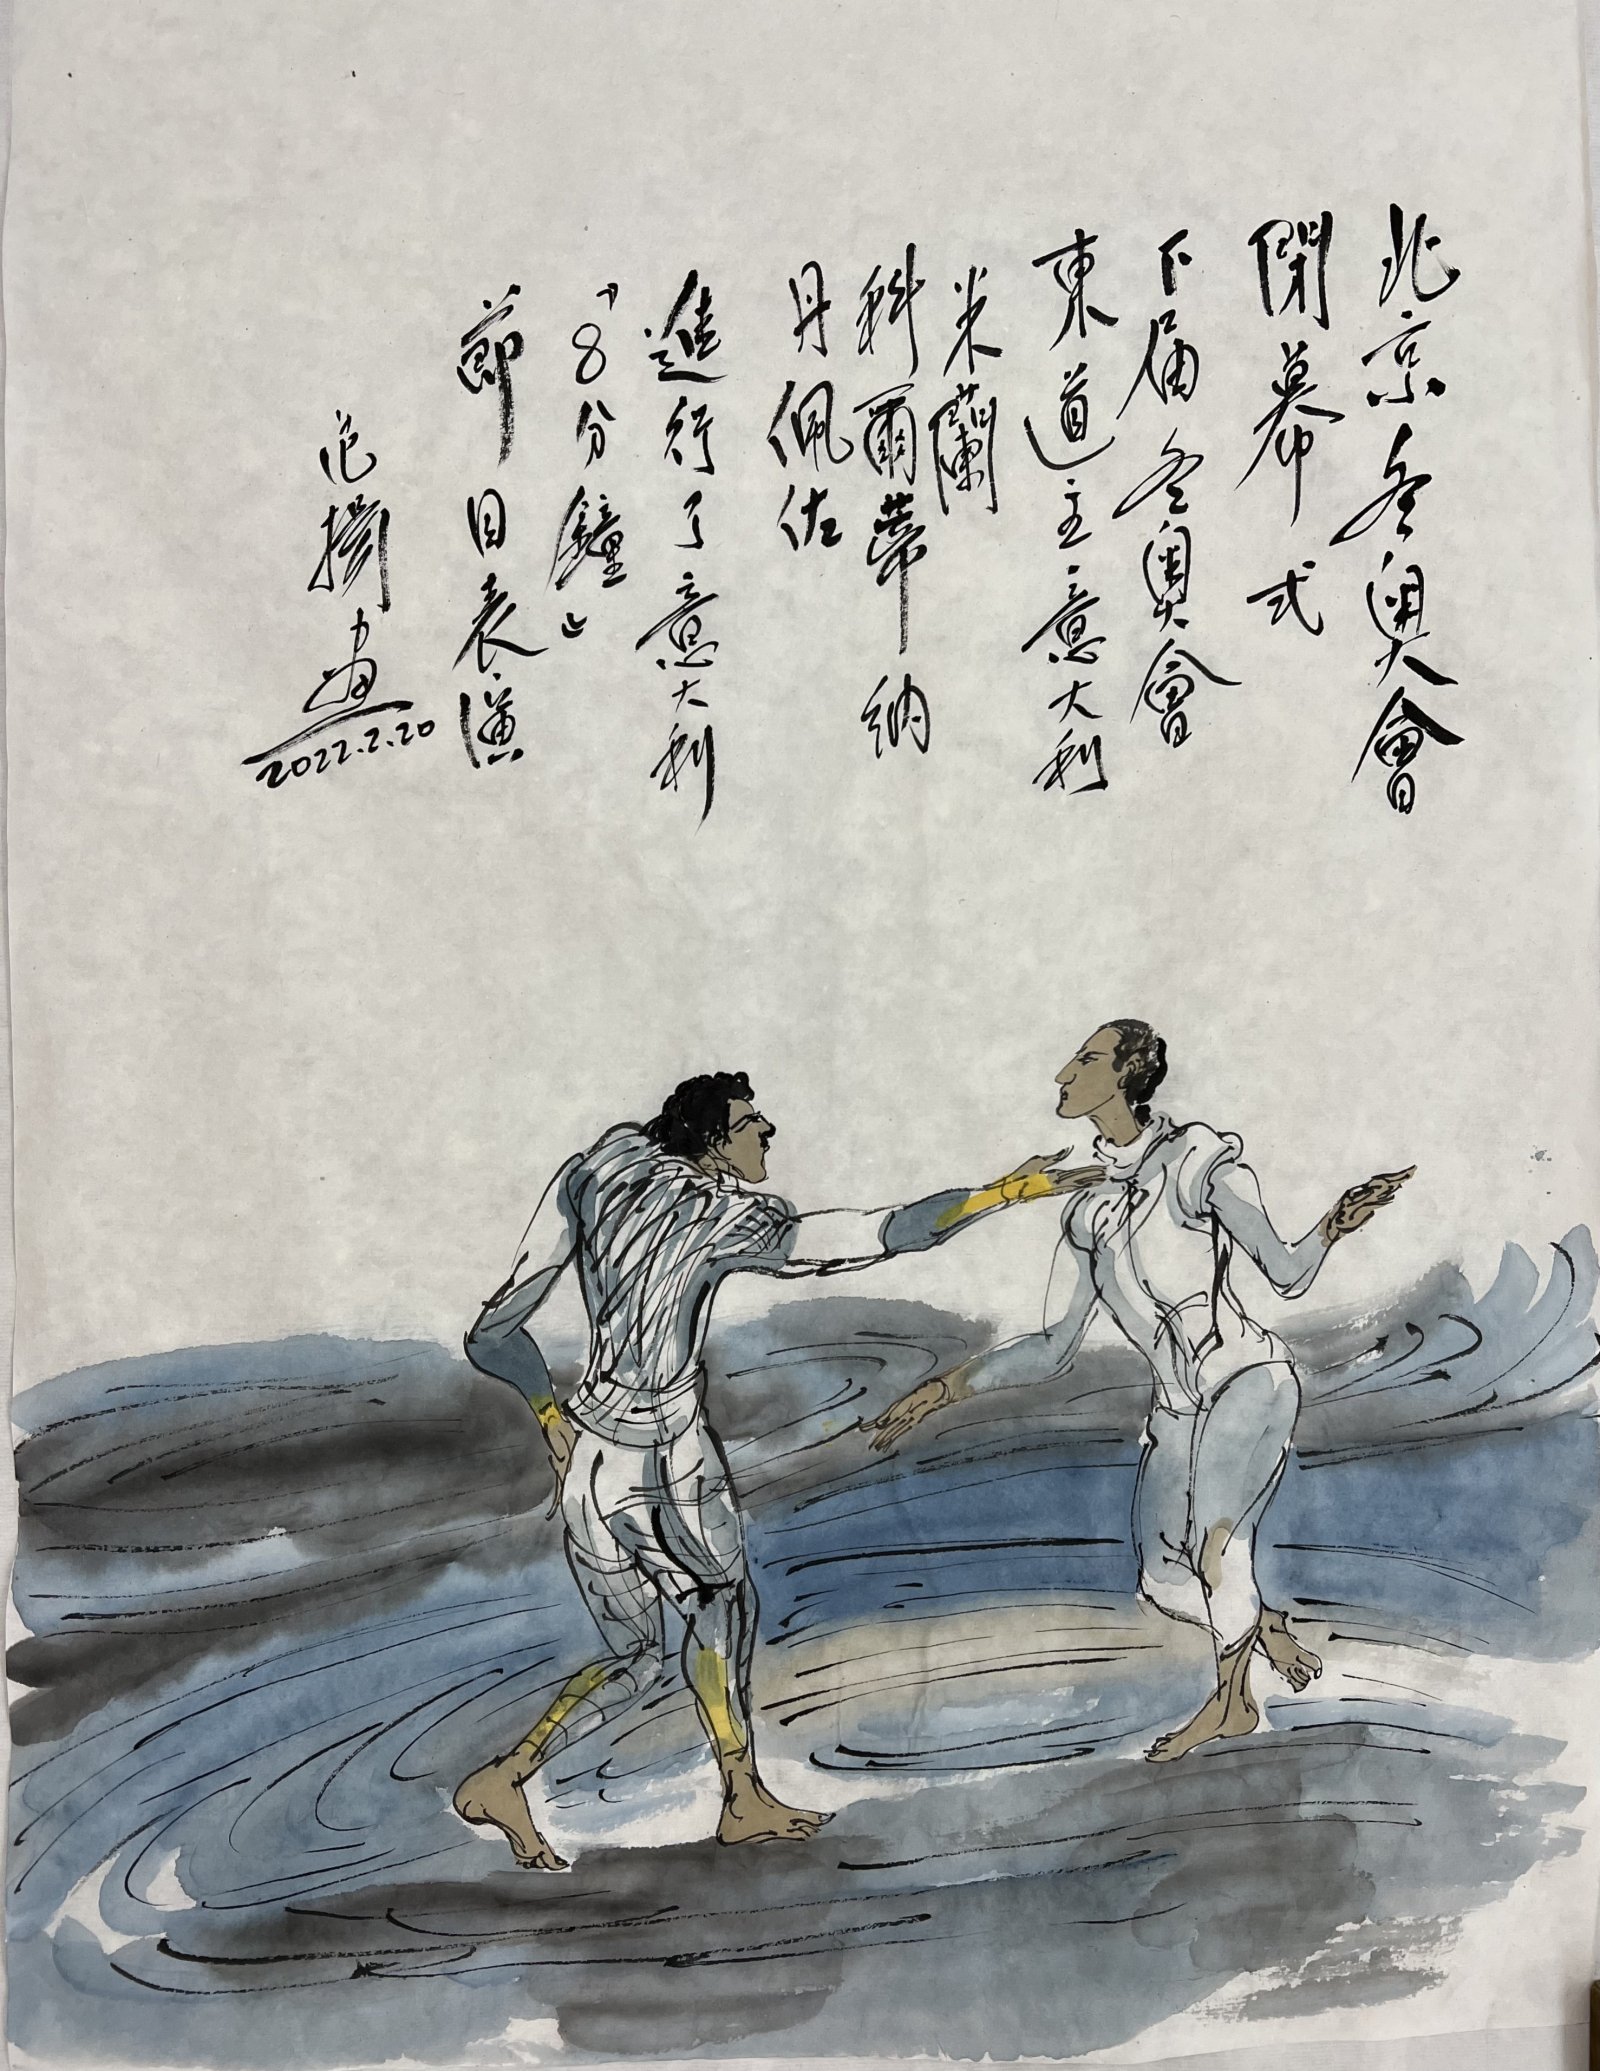 北京冬奧會
閉幕式
下届冬奧會
東道主意大利
米蘭
科爾蒂納
丹佩佐
進行了意大利
「8分鐘」
節目表演
范揚畫
2022.2.20